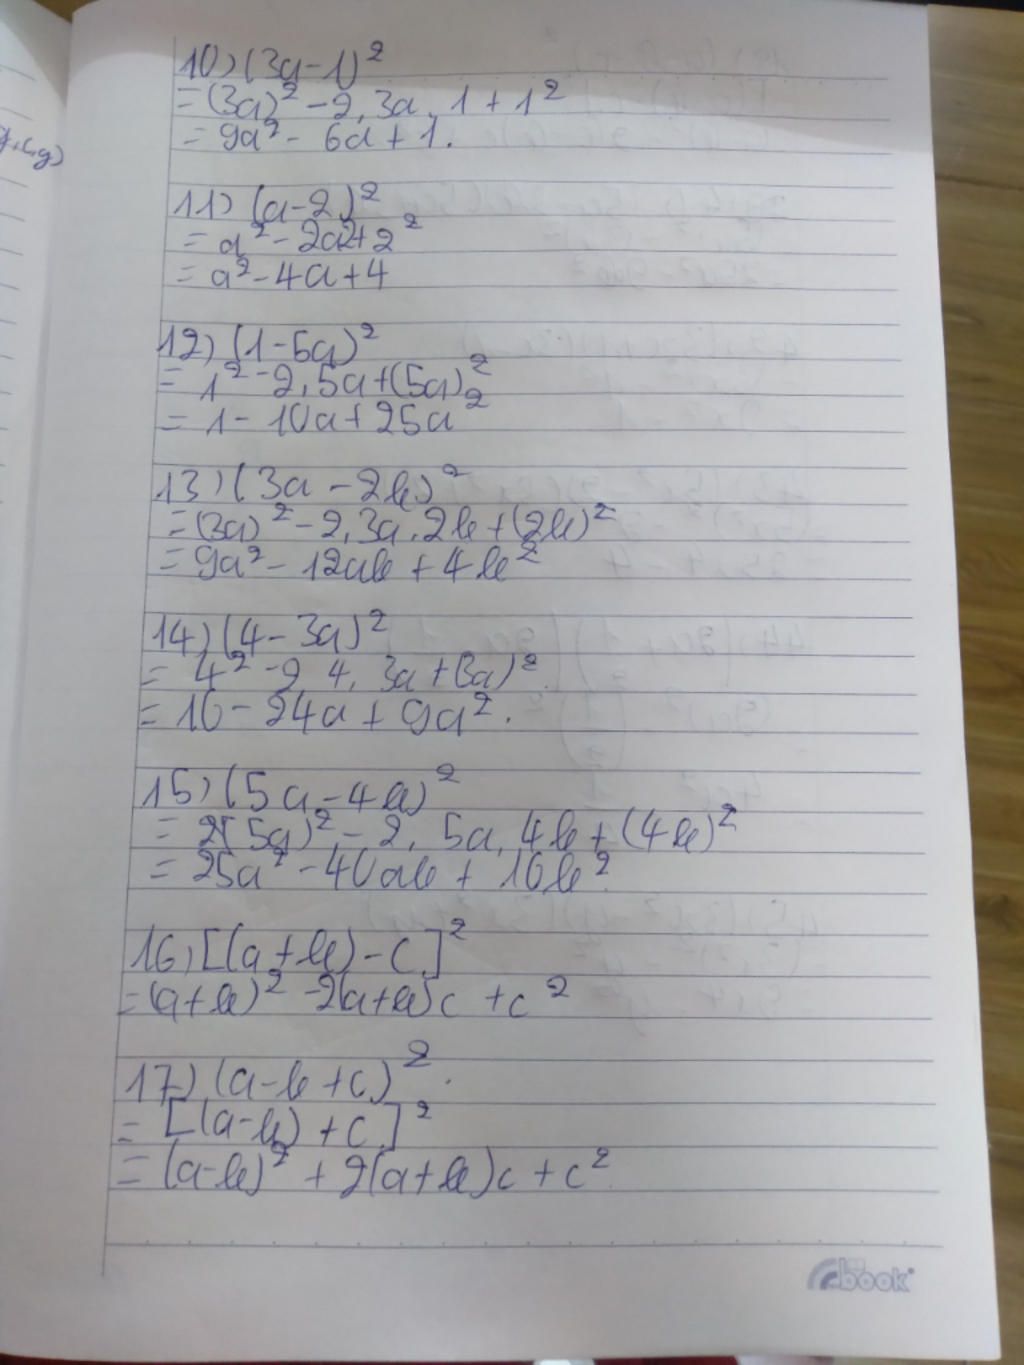 10) (3a-1)²
= (3a)² - 2, 3a, 1 + 1²
= 9a² - 6a + 1.
11) (a-2)²
= a² - 2a2+2²
= a² - 4a + 4
12) (1-5a)²
= 1² - 2, 5a + (5a)²
= 1 - 10a + 25a²
13) (3a - 2b)²
= (3a)² - 2, 3a . 2b + (2b)²
= 9a² - 12ab + 4b²
14) (4 - 3a)²
= 4² - 2 4, 3a + (3a)²
= 16 - 24a + 9a².
15) (5a - 4b)²
= (5a)² - 2, 5a, 4b + (4b)²
= 25a² - 40ab + 16b²
16) [(a + b) - c]²
= (a+b)² - 2(a+b)c + c²
17) (a-b+c)²
= [(a-b) + c]²
= (a-b)² + 2(a+b)c + c²
book